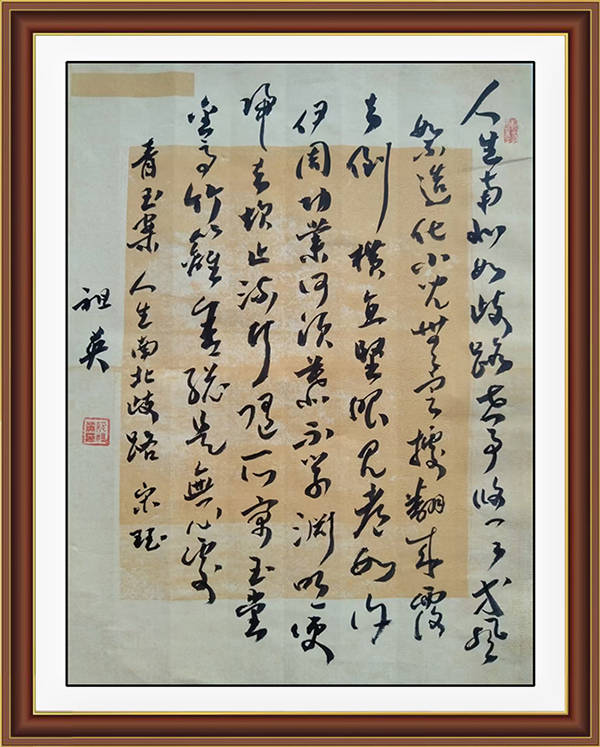 人生南北如歧路世事悠悠等風
絮造化小兒無定據翻来覆
去倒橫直竪眼見都如許
伊周功業何須慕不学淵明便
歸去坎止流行隨所寓玉堂
金馬竹籬茅舍総是無心處
青玉案 人生南北歧路 宋珏
祖英